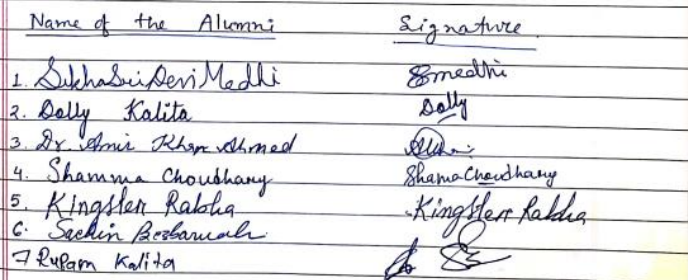 Name of the Alumni Signature
1. SikhaSriDeviMedhi Smedhi
2. Dolly Kalita Dolly
3. Dr. Amir Khan Ahmed
4. Shamma Choudhary Shama Choudhary
5. Kingsten Rabha Kingsten Rabha
6. Sachin Bezbaruah
7 Rupam Kalita